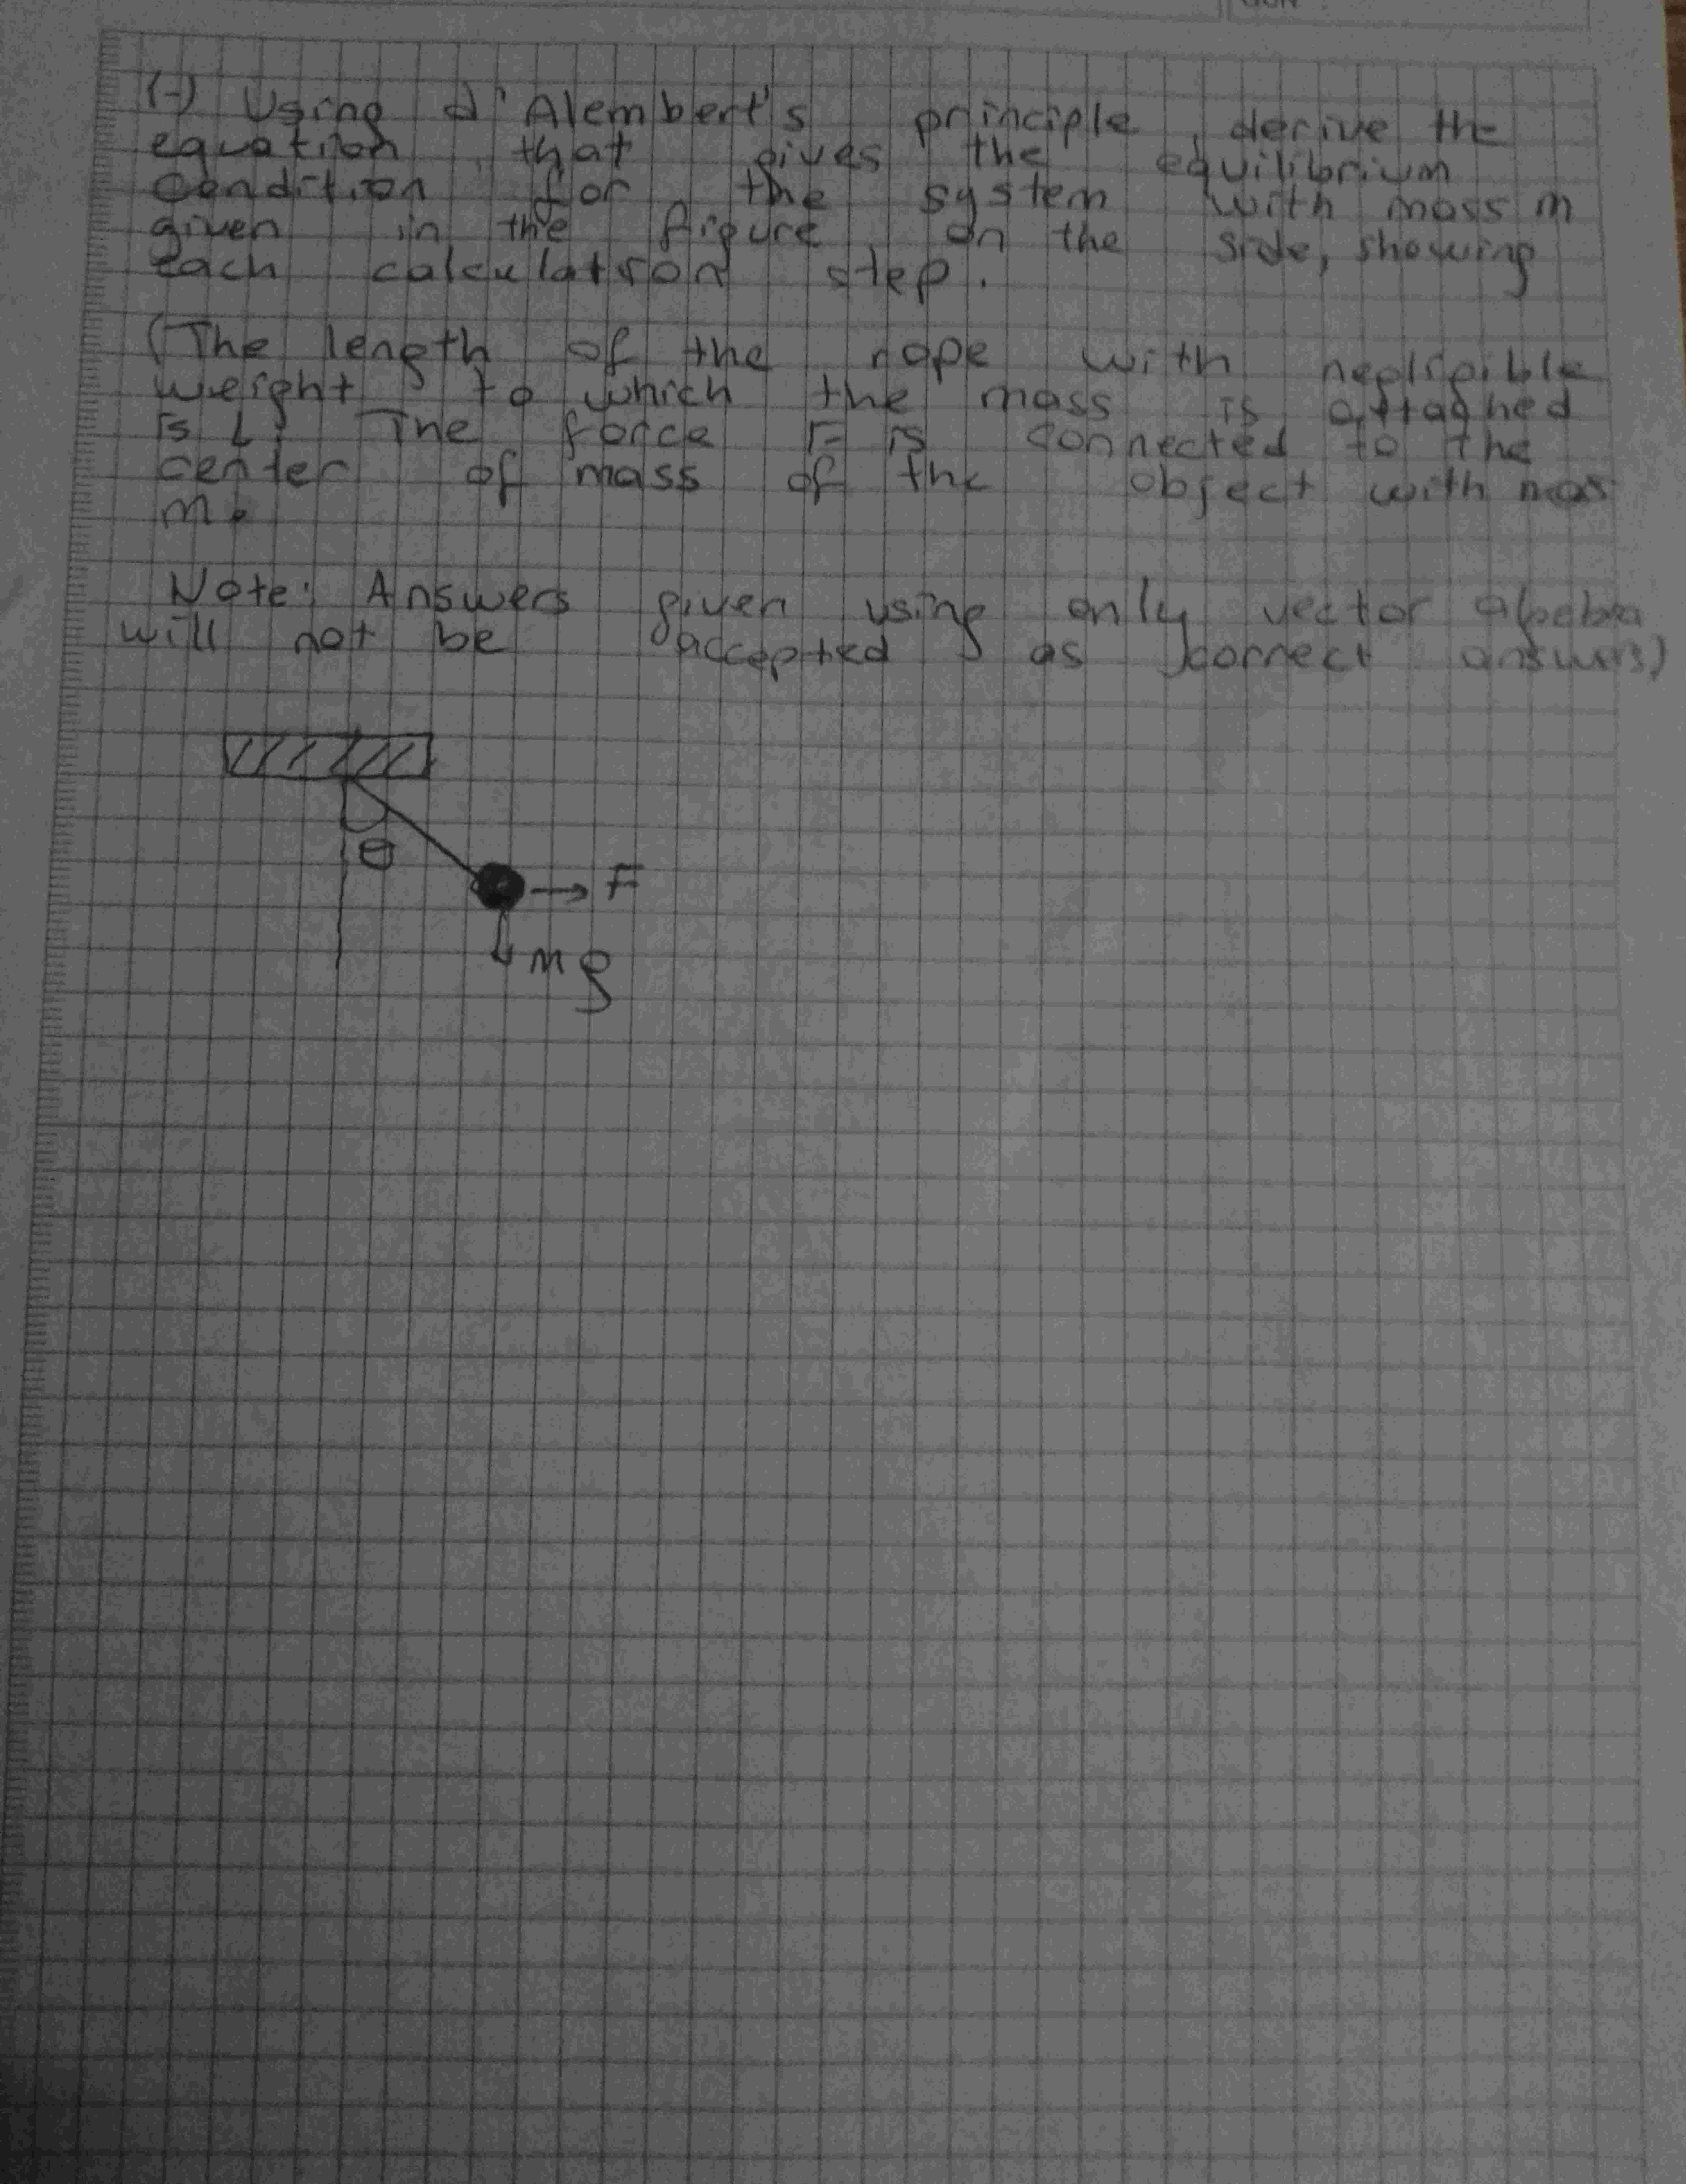 (-) Using d'Alembert's principle, derive the
equation that gives the equilibrium
condition for the system with mass m
given in the figure on the side, showing
each calculation step.
(The length of the rope with negligible
weight to which the mass is attached
is L. The force F is connected to the
center of mass of the object with mas
m.
Note: Answers given using only vector algebra
will not be accepted as correct answers)
θ
F
mg